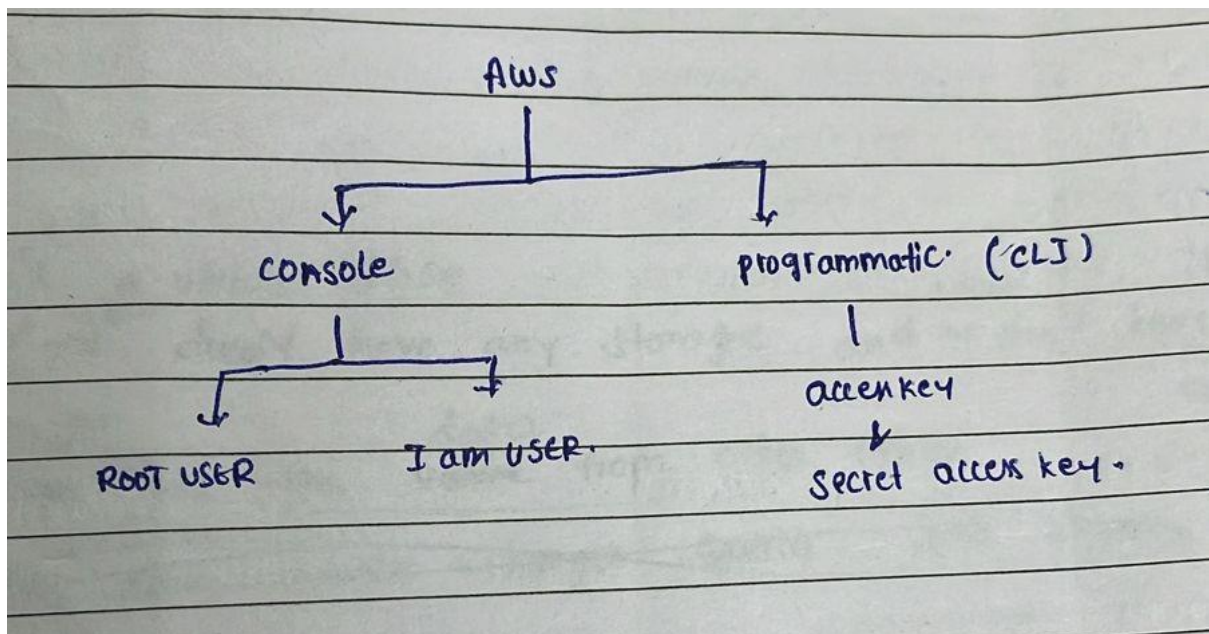 AWS
console
programmatic. (CLI)
ROOT USER
I am USER.
accenkey
secret access key.